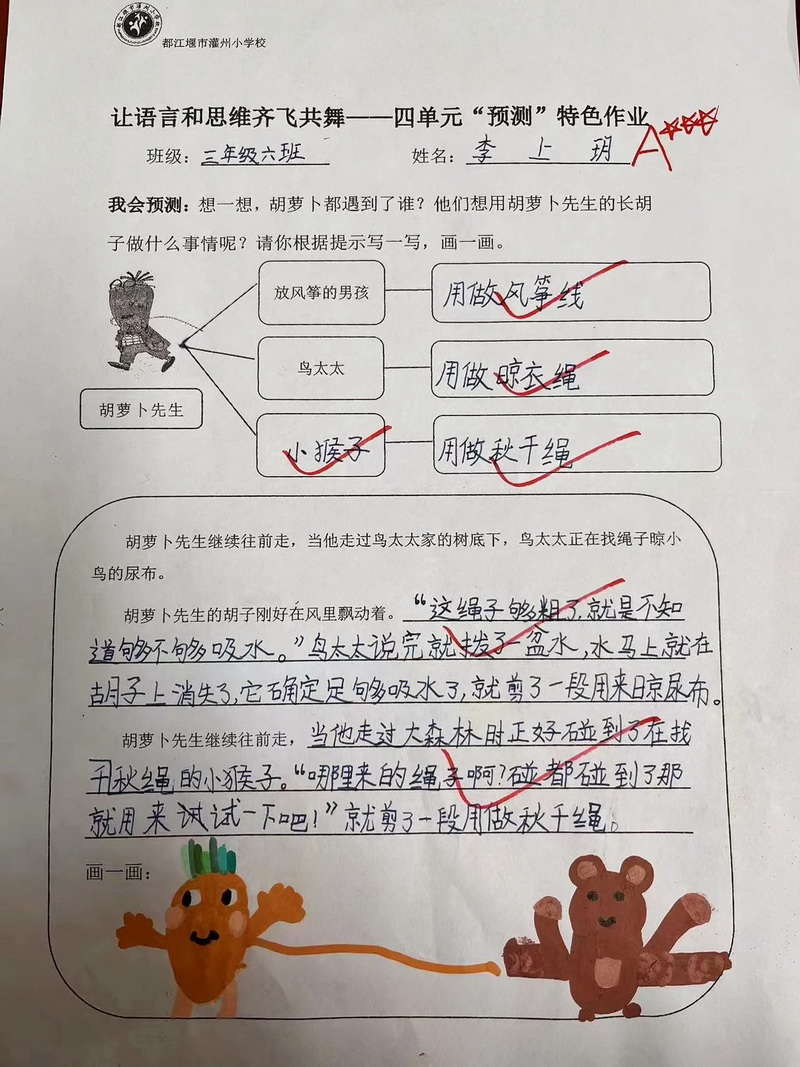 都江堰市灌州小学校
让语言和思维齐飞共舞——四单元“预测”特色作业
班级：三年级六班 姓名：李上玥 A
我会预测：想一想，胡萝卜都遇到了谁？他们想用胡萝卜先生的长胡
子做什么事情呢？请你根据提示写一写，画一画。
放风筝的男孩 用做风筝线
鸟太太 用做晾衣绳
胡萝卜先生
小猴子 用做秋千绳
胡萝卜先生继续往前走，当他走过鸟太太家的树底下，鸟太太正在找绳子晾小
鸟的尿布。
胡萝卜先生的胡子刚好在风里飘动着。“这绳子够粗了，就是不知
道够不够吸水。”鸟太太说完就拨了一盆水，水马上就在
胡子上消失了，它确定足够吸水了，就剪了一段用来晾尿布。
胡萝卜先生继续往前走，当他走过大森林时正好碰到了在找
千秋绳的小猴子。“哪里来的绳子啊？碰都碰到了那
就用来试试一下吧！”就剪了一段用做秋千绳。
画一画：